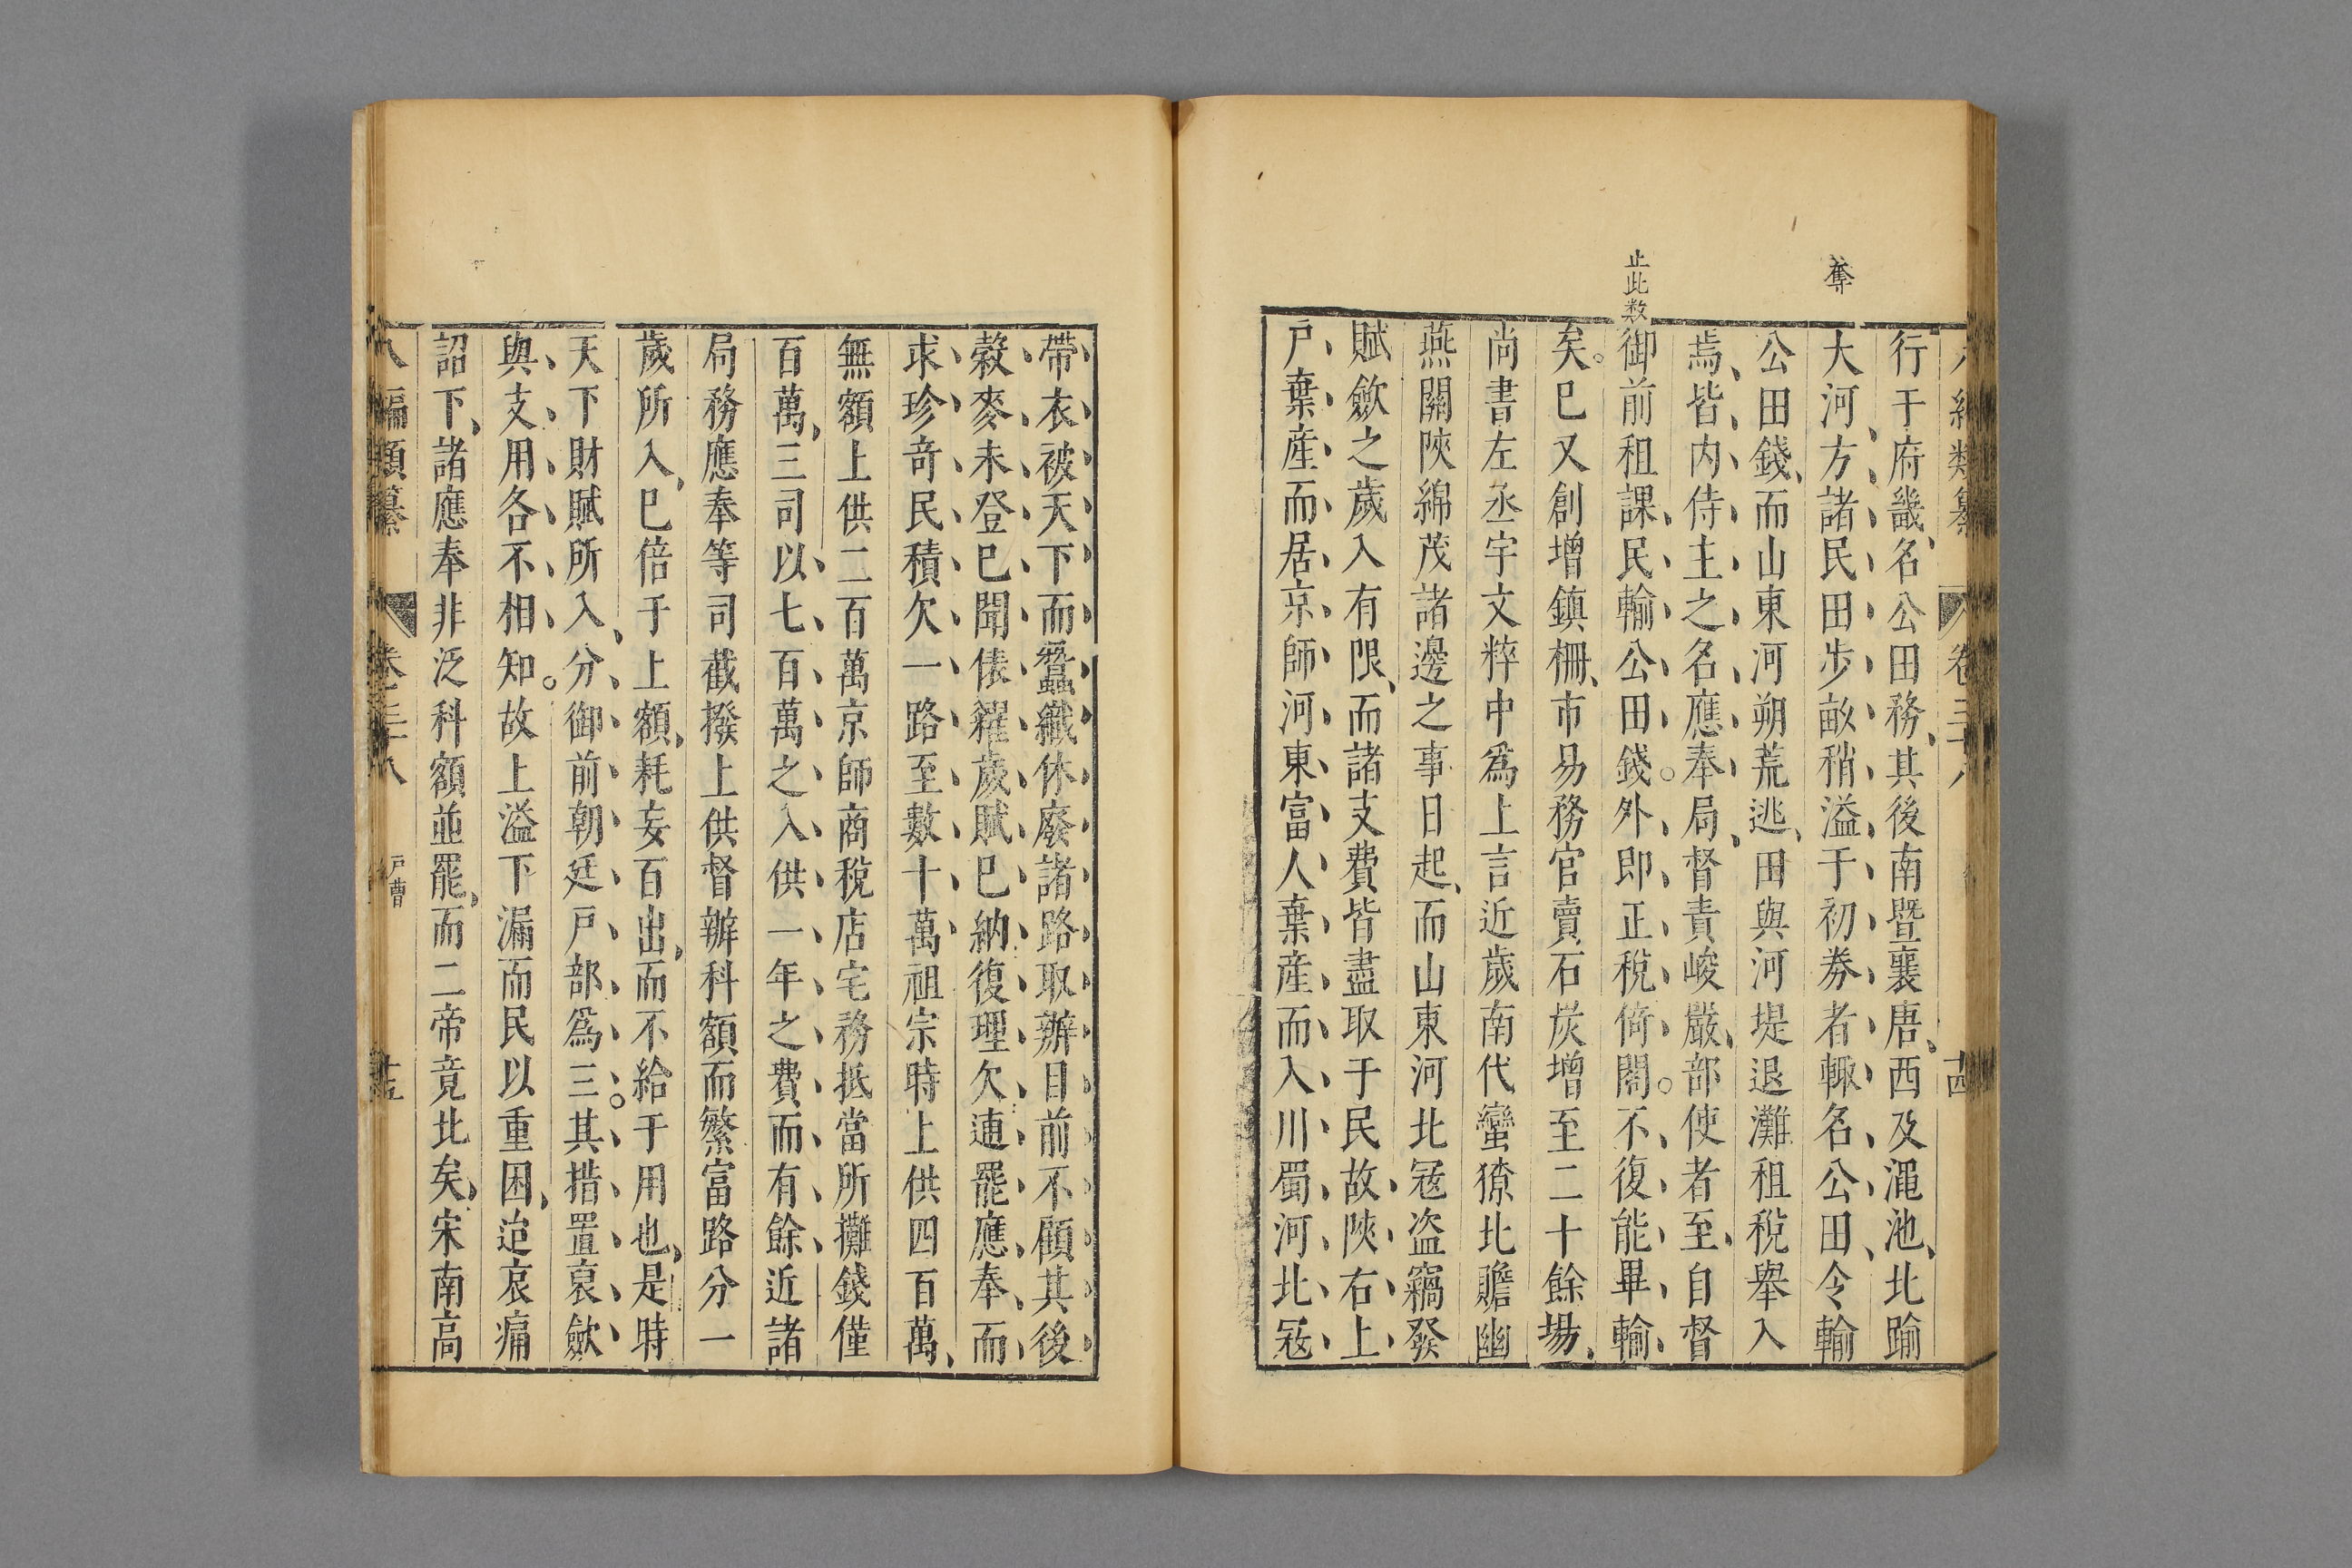 八編類纂 卷三十八 十四
奪
行于府畿名公田務其後南暨襄唐西及澠池北踰
大河方諸民田步畝稍溢于初券者輙名公田令輸
公田錢而山東河朔荒逃田與河堤退灘租稅舉入
焉皆内侍主之名應奉局督責峻嚴部使者至自督
止此数
御前租課民輸公田錢外即正稅倚閣不復能畢輸
矣已又創增鎮柵市易務官賣石炭增至二十餘場
尚書左丞宇文粹中爲上言近歲南代蠻獠北贍幽
燕關陜綿茂諸邊之事日起而山東河北寇盗竊發
賦歛之歲入有限而諸支費皆盡取于民故陜右上
戸棄産而居京師河東富人棄産而入川蜀河北寇
帶衣被天下而蠶織休廢諸路取辦目前不顧其後
穀麥未登已聞俵糴歲賦已納復理欠逋罷應奉而
求珍奇民積欠一路至數十萬祖宗時上供四百萬
無額上供二百萬京師商稅店宅務抵當所攤錢僅
百萬三司以七百萬之入供一年之費而有餘近諸
局務應奉等司截撥上供督辦科額而繁富路分一
歲所入已倍于上額耗妄百出而不給于用也是時
天下財賦所入分御前朝廷戸部爲三其措置裒歛
與支用各不相知故上溢下漏而民以重困迨哀痛
詔下諸應奉非泛科額並罷而二帝竟北矣宋南高
八編類纂 卷三十八 戸曹 十五